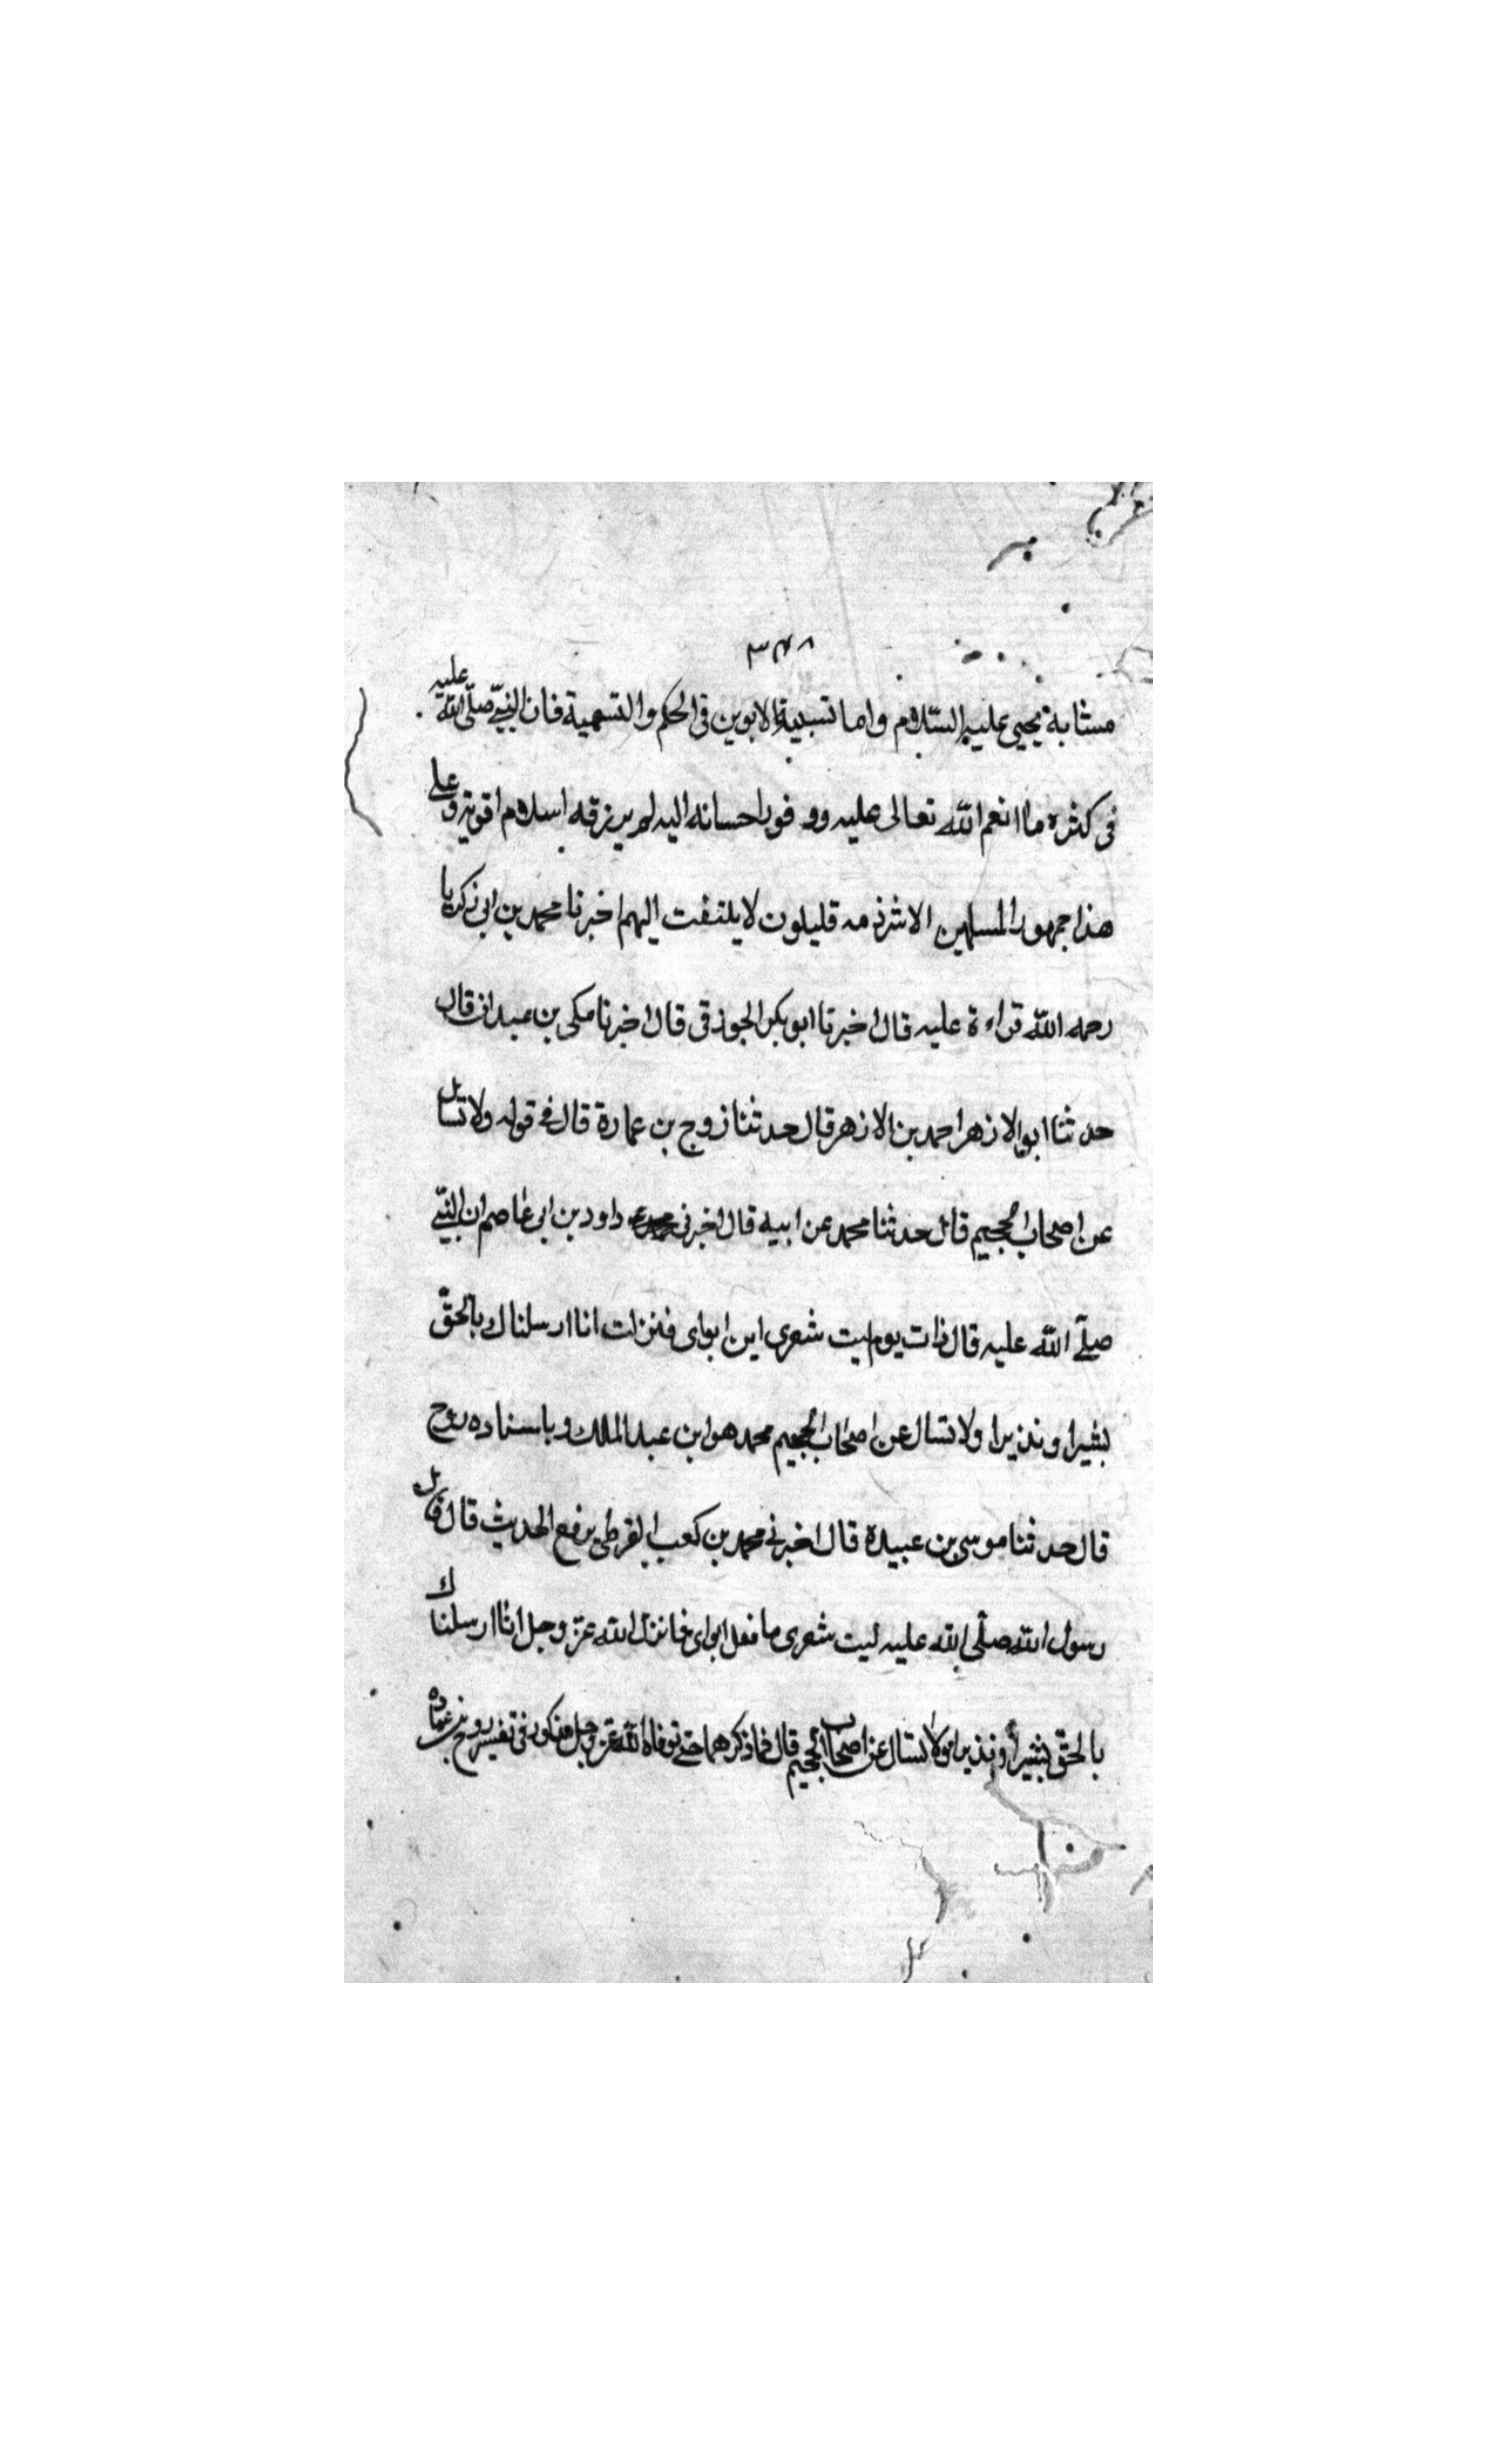 ٣٤٨
مشابه يحيى عليه السّلام واما تسبية الابوين فى الحكم والتسمية فان النبىّ صلّى الله عليه
فى كثره ما انعم الله تعالى عليه ووفور احسانه اليه لم يرزقه اسلام ابويه وعلى
هذا جمهور المسلمين الا شرذمه قليلون لا يلتفت اليهم اخبرنا محمد بن ابى زكريا
رحمه الله قراءة عليه قال اخبرنا ابو بكر الجوزقى قال اخبرنا مكى بن عبدان قال
حدثنا ابو الازهر احمد بن الازهر قال حدثنا روح بن عمارة قال فى قوله ولا تسال
عن اصحاب الجحيم قال حدثنا محمد عن ابيه قال اخبرنى داود بن ابى عاصم ان النبىّ
صلّى الله عليه قال ذات يوم ليت شعرى اين ابواى فنزلت انا ارسلناك بالحقّ
بشيرا ونذيرا ولا تسال عن اصحاب الجحيم محمد هو ابن عبد الملك وباسناده روح
قال حدثنا موسى بن عبيدة قال اخبرنى محمد بن كعب القرظى يرفع الحديث قال قال
رسول الله صلّى الله عليه ليت شعرى ما فعل ابواى فانزل الله عز وجل انا ارسلناك
بالحقّ بشيرا ونذيرا ولا تسال عن اصحاب الجحيم قال فما ذكرهما حتى توفاه الله عز وجل مذكور فى تفسير روح بن عباده